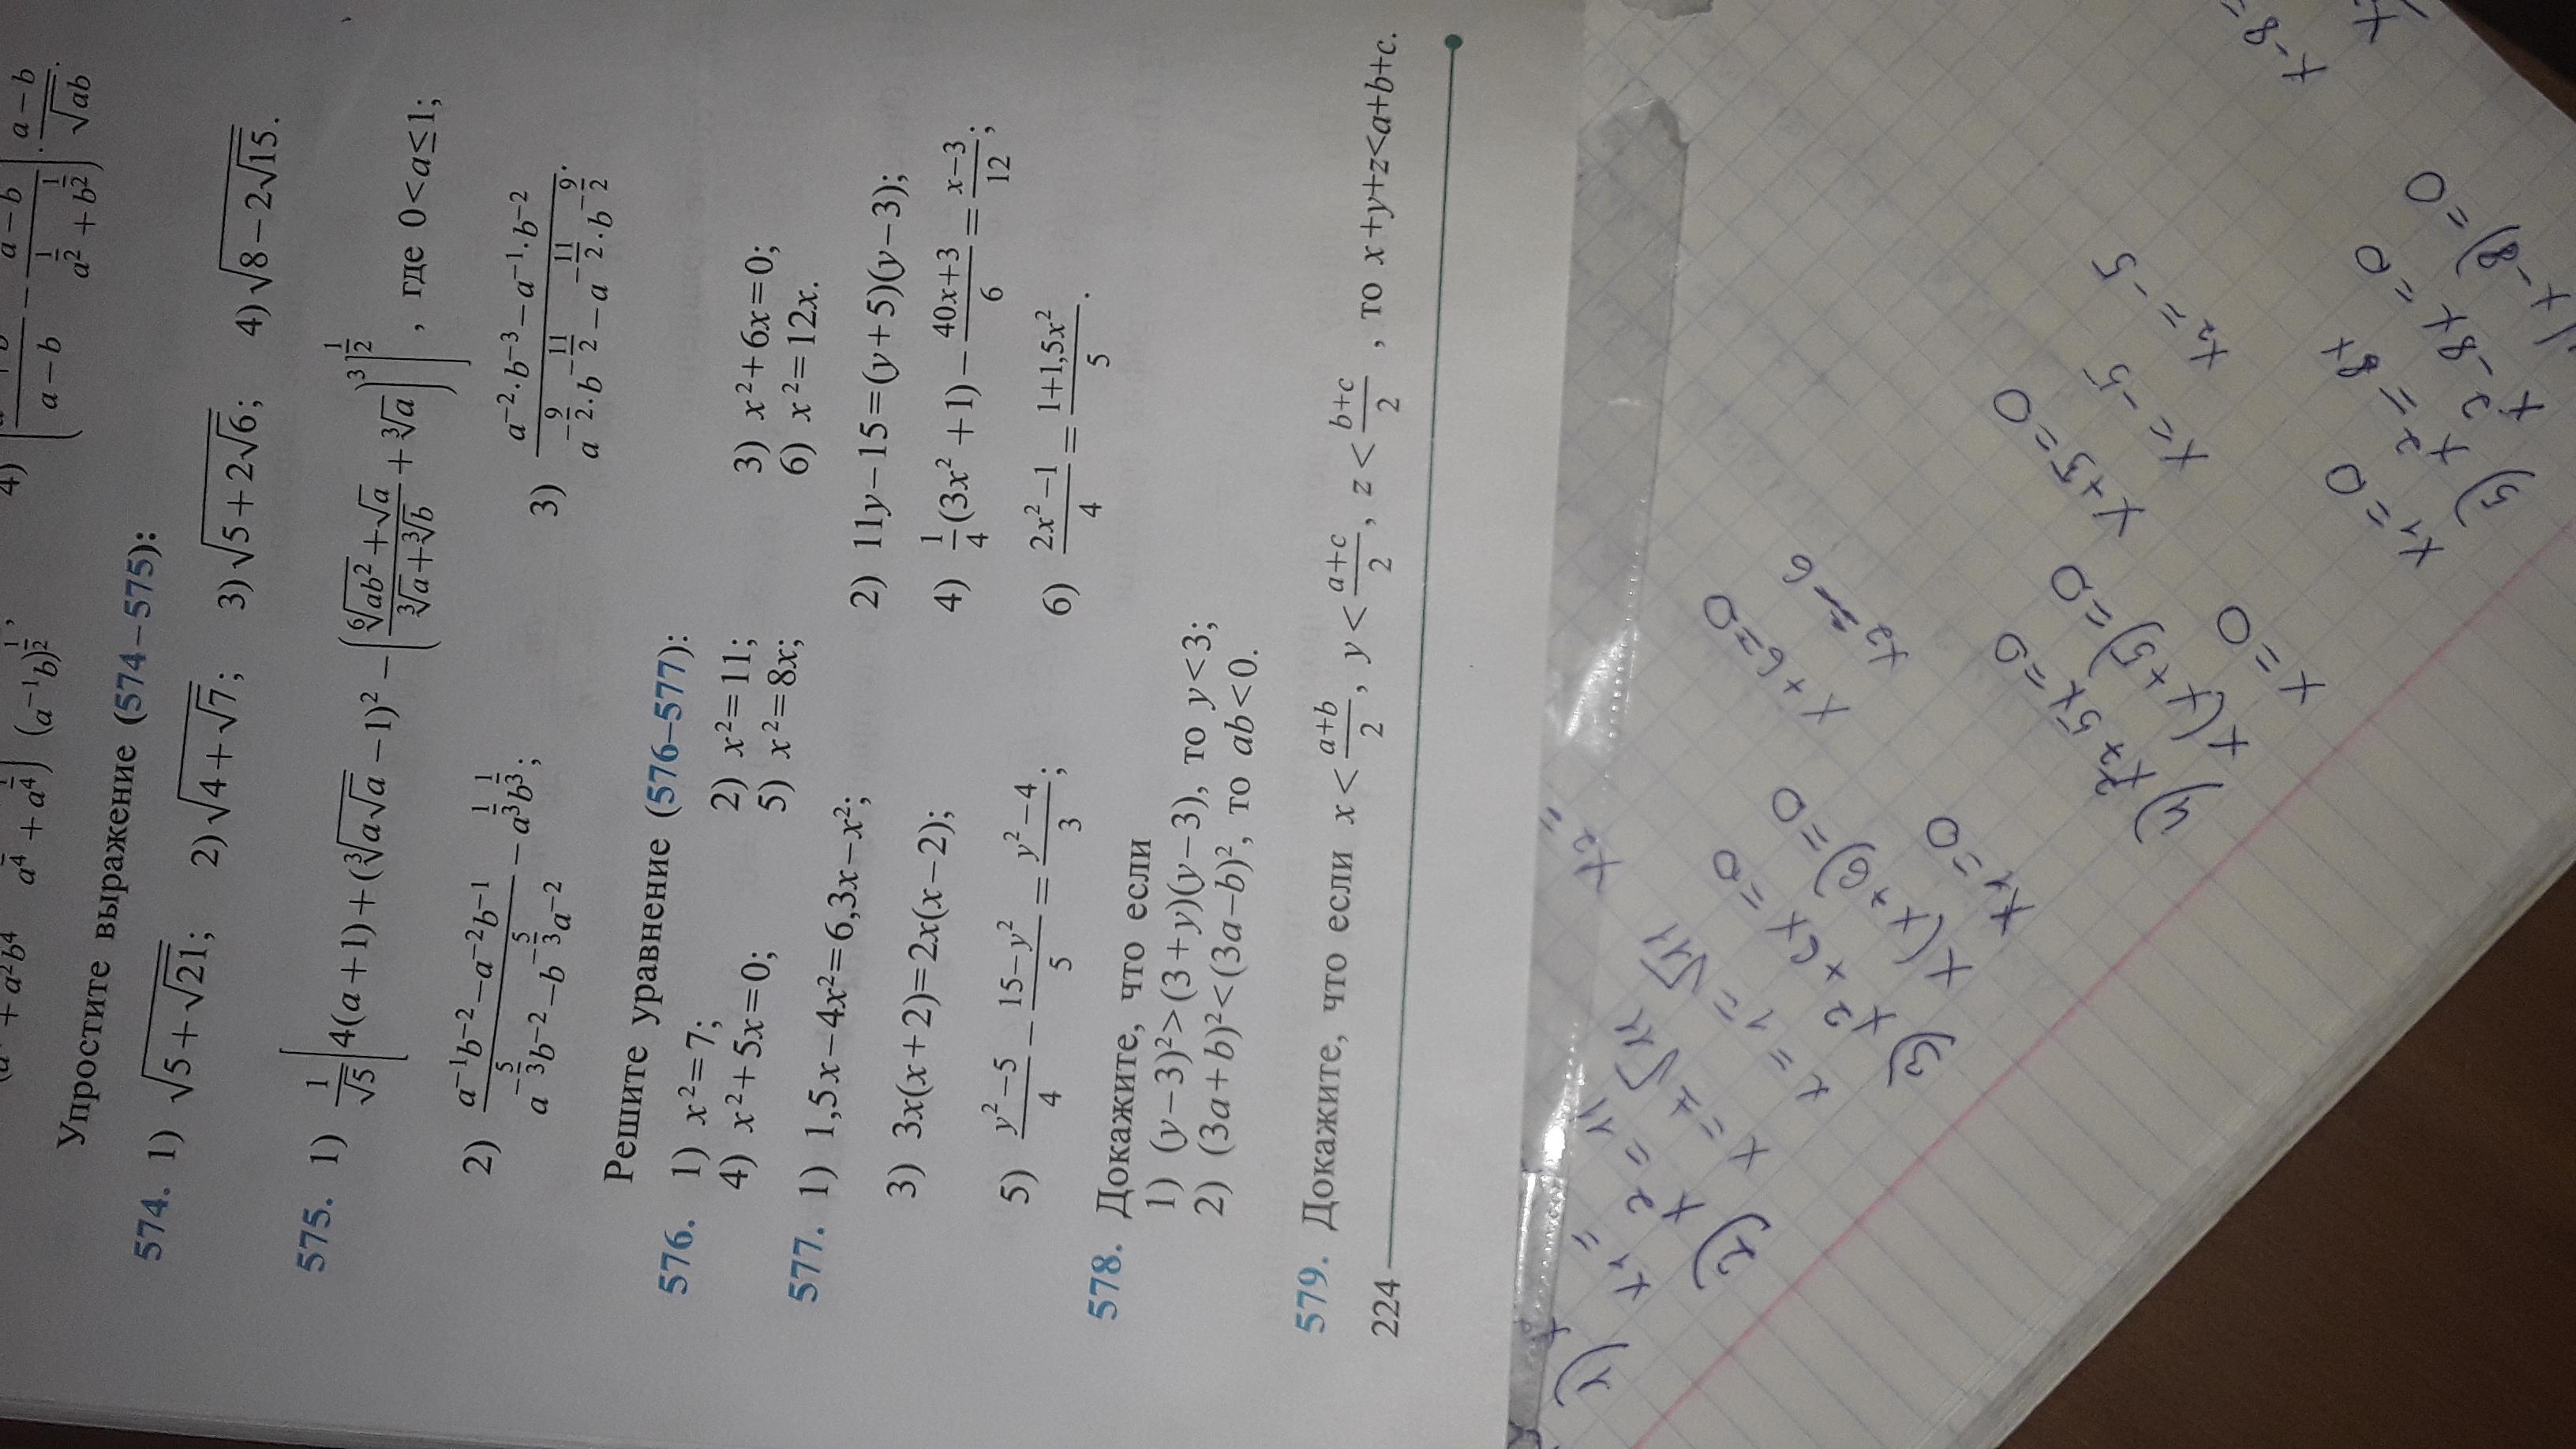 4)
a − b
a^{1/2} + b^{1/2}
a − b
√ab
Упростите выражение (574–575):
574. 1) √(5 + √21); 2) √(4 + √7); 3) √(5 + 2√6; 4) √(8 − 2√15.
575. 1) 1/√5 [4(a + 1) + (∛(a√a) − 1)² − ((⁶√(ab²) + √a)/(∛a + ∛b) + ∛a)³]^{1/2}, где 0<a≤1;
2) (a⁻¹b⁻² − a⁻²b⁻¹)/(a^{−5/3}b⁻² − b^{−5/3}a⁻²) − a^{1/3}b^{1/3}; 3) (a⁻²·b⁻³ − a⁻¹·b⁻²)/(a^{−9/2}·b^{−11/2} − a^{−11/2}·b^{−9/2}).
Решите уравнение (576–577):
576. 1) x²=7; 2) x²=11; 3) x²+6x=0;
4) x²+5x=0; 5) x²=8x; 6) x²=12x.
577. 1) 1,5x−4x²=6,3x−x²; 2) 11y−15=(y+5)(y−3);
3) 3x(x+2)=2x(x−2); 4) 1/4(3x²+1) − (40x+3)/6 = (x−3)/12;
5) (y²−5)/4 − (15−y²)/5 = (y²−4)/3; 6) (2x²−1)/4 = (1+1,5x²)/5.
578. Докажите, что если
1) (y−3)²>(3+y)(y−3), то y<3;
2) (3a+b)²<(3a−b)², то ab<0.
579. Докажите, что если x<(a+b)/2, y<(a+c)/2, z<(b+c)/2, то x+y+z<a+b+c.
224
1)
x₁= x₂=
2) x² = 11
3) x² + 6x = 0
x(x+6)=0 x+6=0
x₁=0
4) x²+5x=0
x(x+5)=0 x+5=0
x=0 x=-5
x₁=0 x₂=-5
5) x² = 8x
x²-8x=0
x(x-8)=0
x-8=